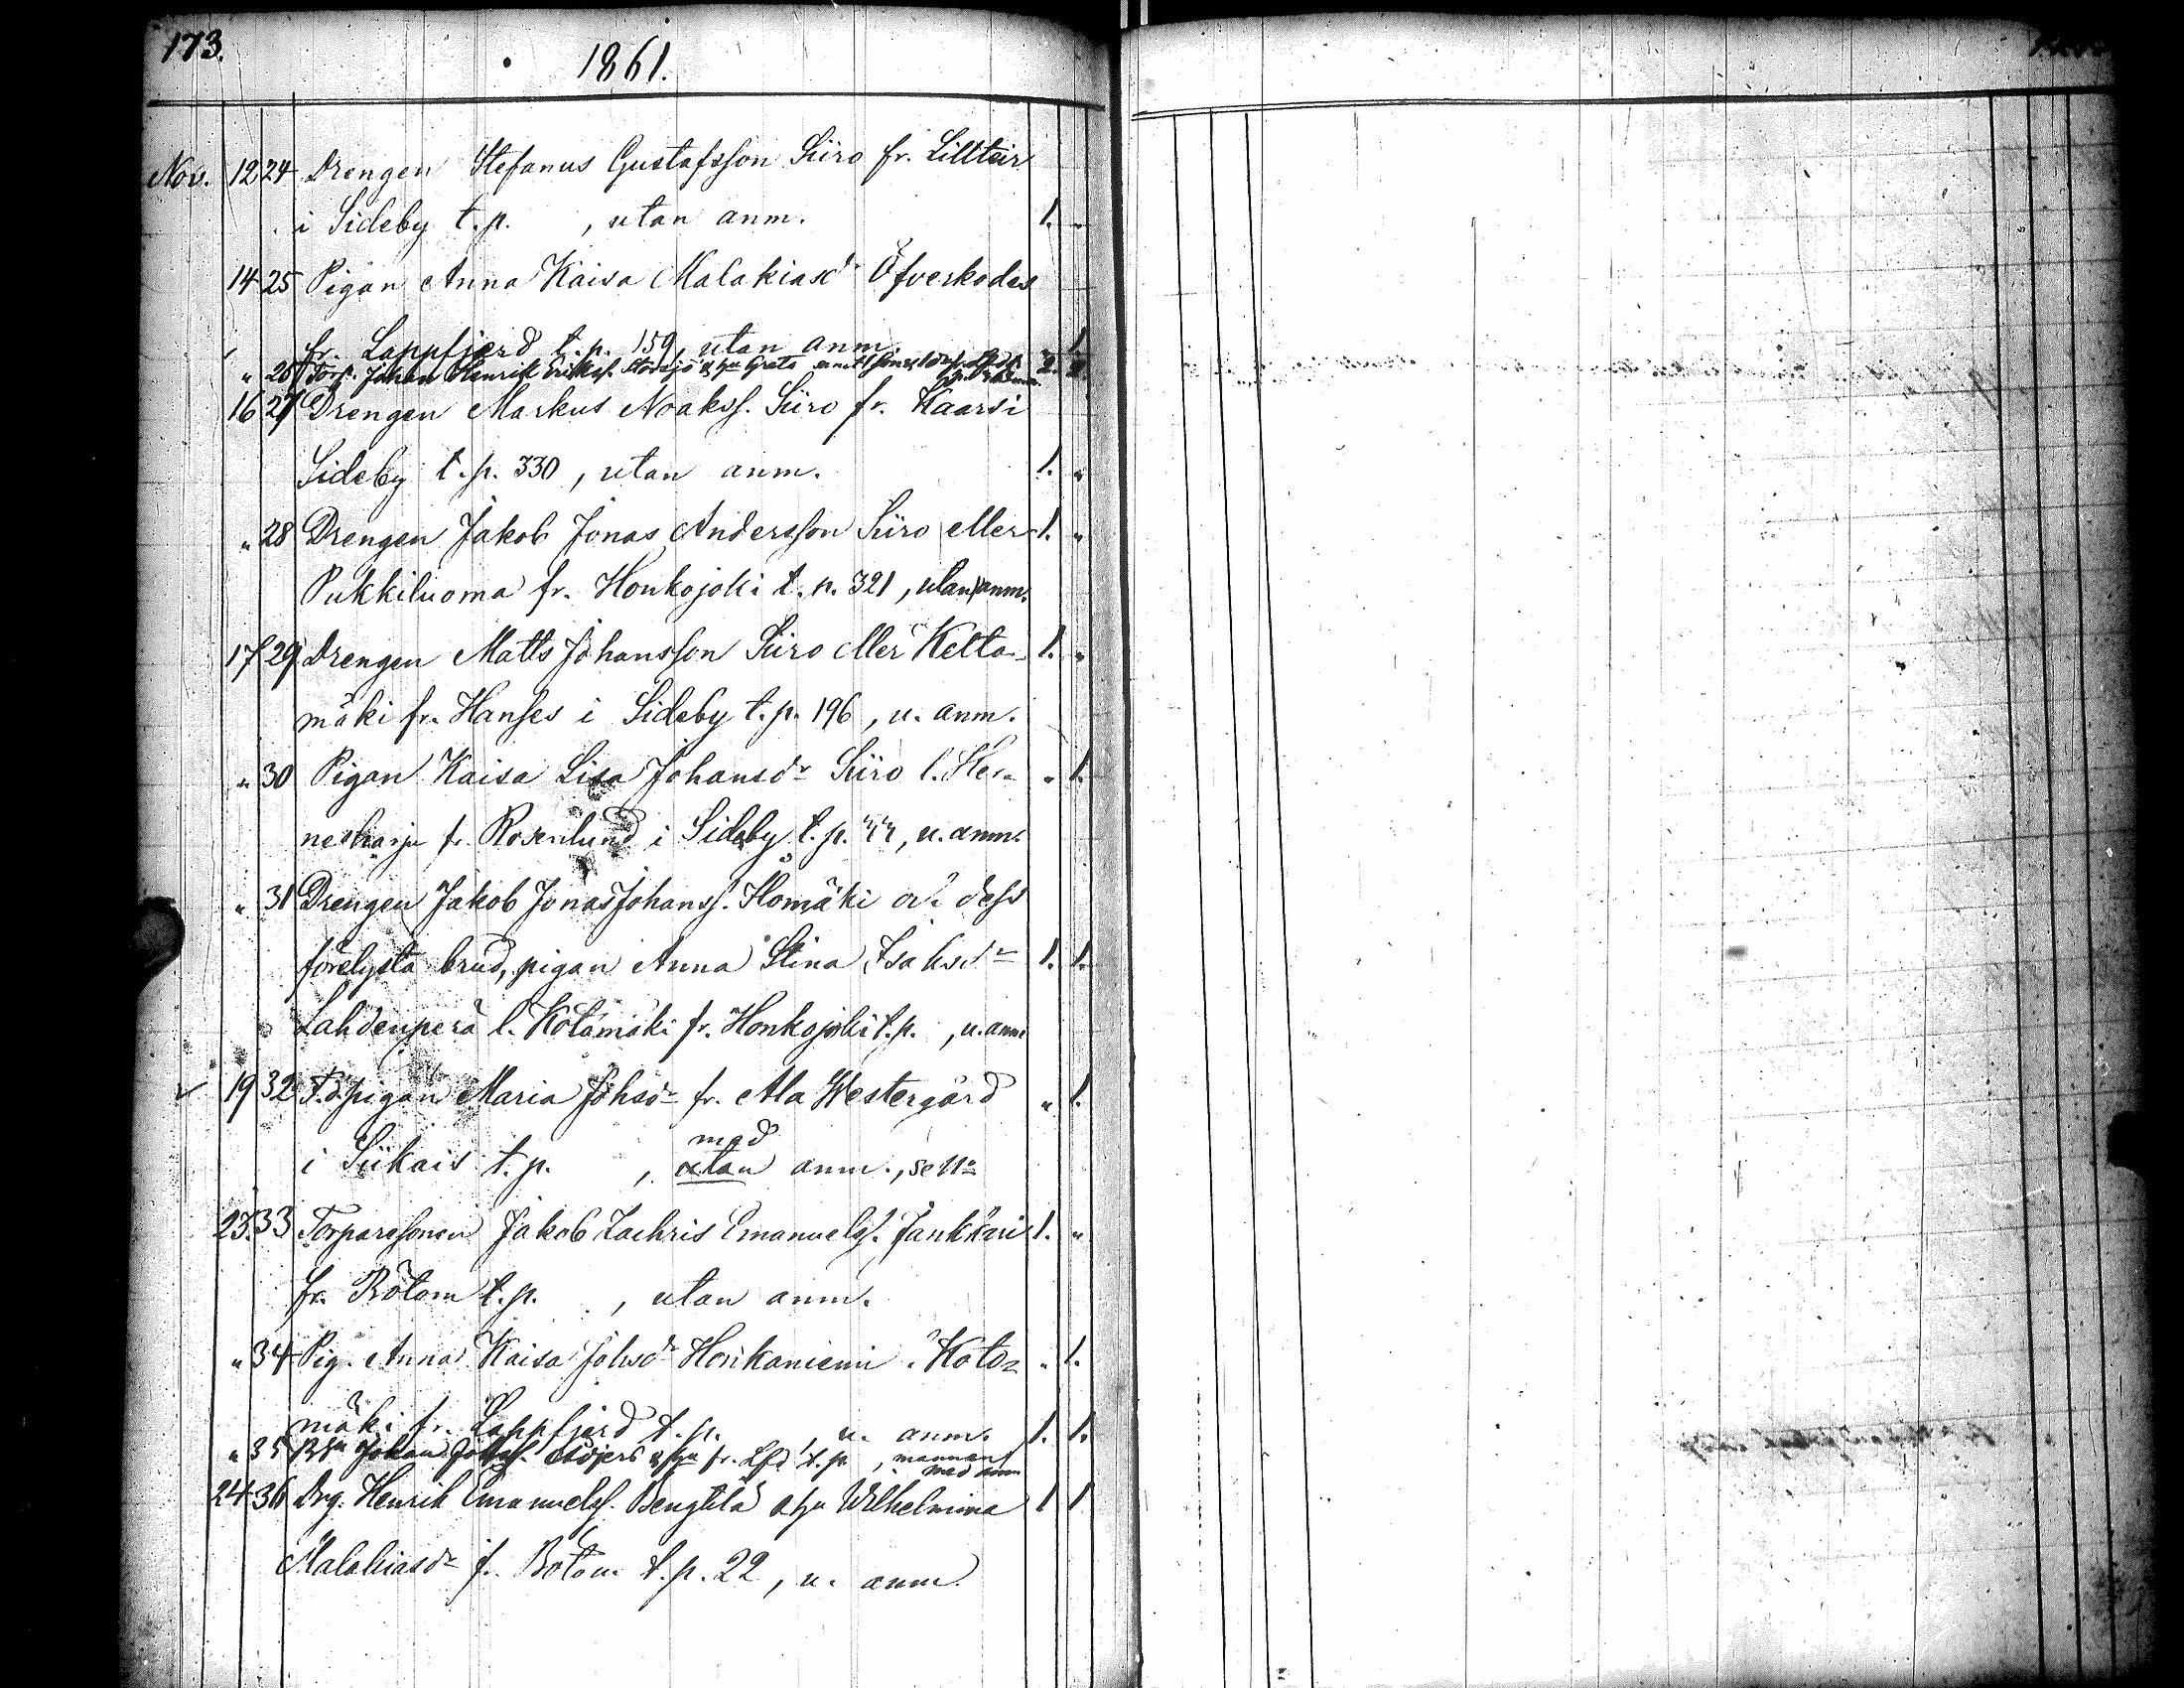 173.
1861.
Nov. 12 24 Drengen Stefanus Gustafsson Siiro fr. Lillteir
i Sideby t.p. , utan anm. 1. "
14 25 Pigan Anna Kaisa Malakiasdr Öfverkodes
fr. Lappfjerd t.p. 159, utan anm. " 1.
" 26 Torp. Johan Henrik Erikss. Stodsjö & hu Greta
16 27 Drengen Markus Noakss. Siiro fr. Kaarsi
Sideby t.p. 330, utan anm. 1. "
" 28 Drengen Jakob Jonas Andersson Siiro eller 1. "
Pukkiluoma fr. Honkojoki t.p. 321, utan anm.
17 29 Drengen Matts Johansson Siiro eller Kelta- 1. "
mäki fr. Hanses i Sideby t.p. 196, u. anm.
" 30 Pigan Kaisa Lisa Johansdr Siiro l. Her- " 1.
nesharju fr. Rosenlund i Sideby t.p. , u. anm.
" 31 Drengen Jakob Jonas Johanss. Ilomäki o. dess
förelysta brud, pigan Anna Stina Isaksdr 1. 1.
Lahdenperä l. Kotamäki fr. Honkojoki t.p. , u. anm
19 32 T.d.pigan Maria Johsdr fr. Ala Westergård " 1.
med
i Siikais t.p. , utan anm.,
23. 33 Torparesonen Jakob Zachris Emanuelss. Jankkari 1. "
fr. Bötom t.p. , utan anm.
" 34 Pig. Anna Kaisa Johsdr Honkaniemi l. Koto- " 1.
mäki fr. Lappfjerd t.p. , u. anm. 1. 1.
" 35 Johan & hu fr. Lfd t.p. , mannen
med anm
24 36 Drg. Henrik Emanuelss. Bengtilä o hu Wilhelmina 1 1
Malakiasdr f. Botom t.p. 22, u. anm.